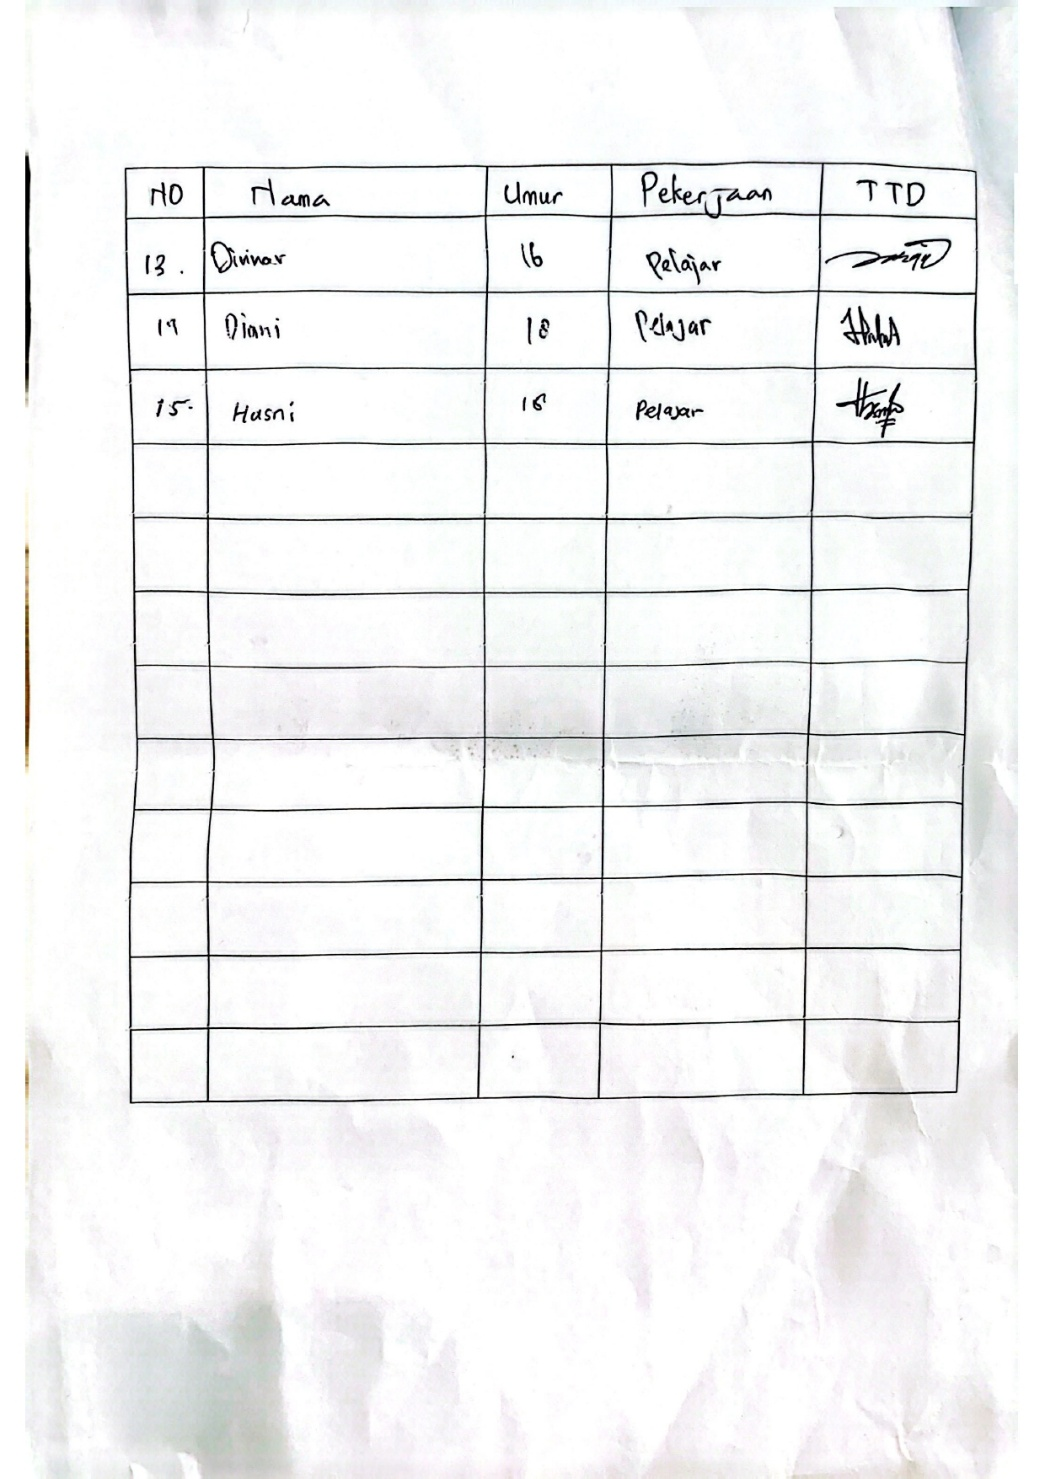 NO Nama Umur Pekerjaan TTD
13. Divinar 16 Pelajar
14 Diani 18 Pelajar
15. Hasni 18 Pelajar